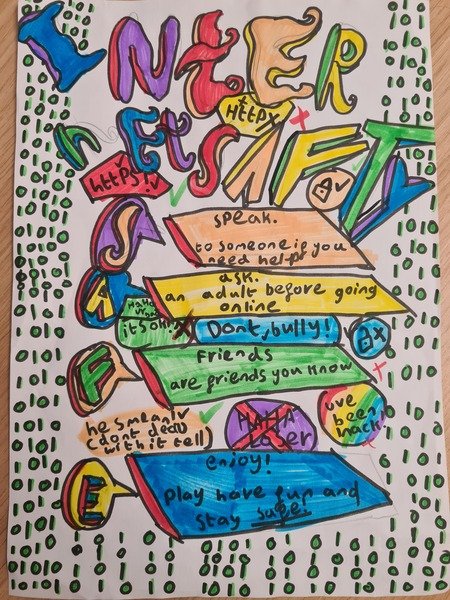 INtER
HttpX
nEtSAFTY
https!✓
S
speak.
to someone if you
need help
A
ask.
an adult before going
online
its ok
Dont, bully!
F
Friends
are friends you know
he s mean
dont deal
with it tell
HAHA
Loser
uve
been
hack
E
enjoy!
Play have fun and
Stay safe!